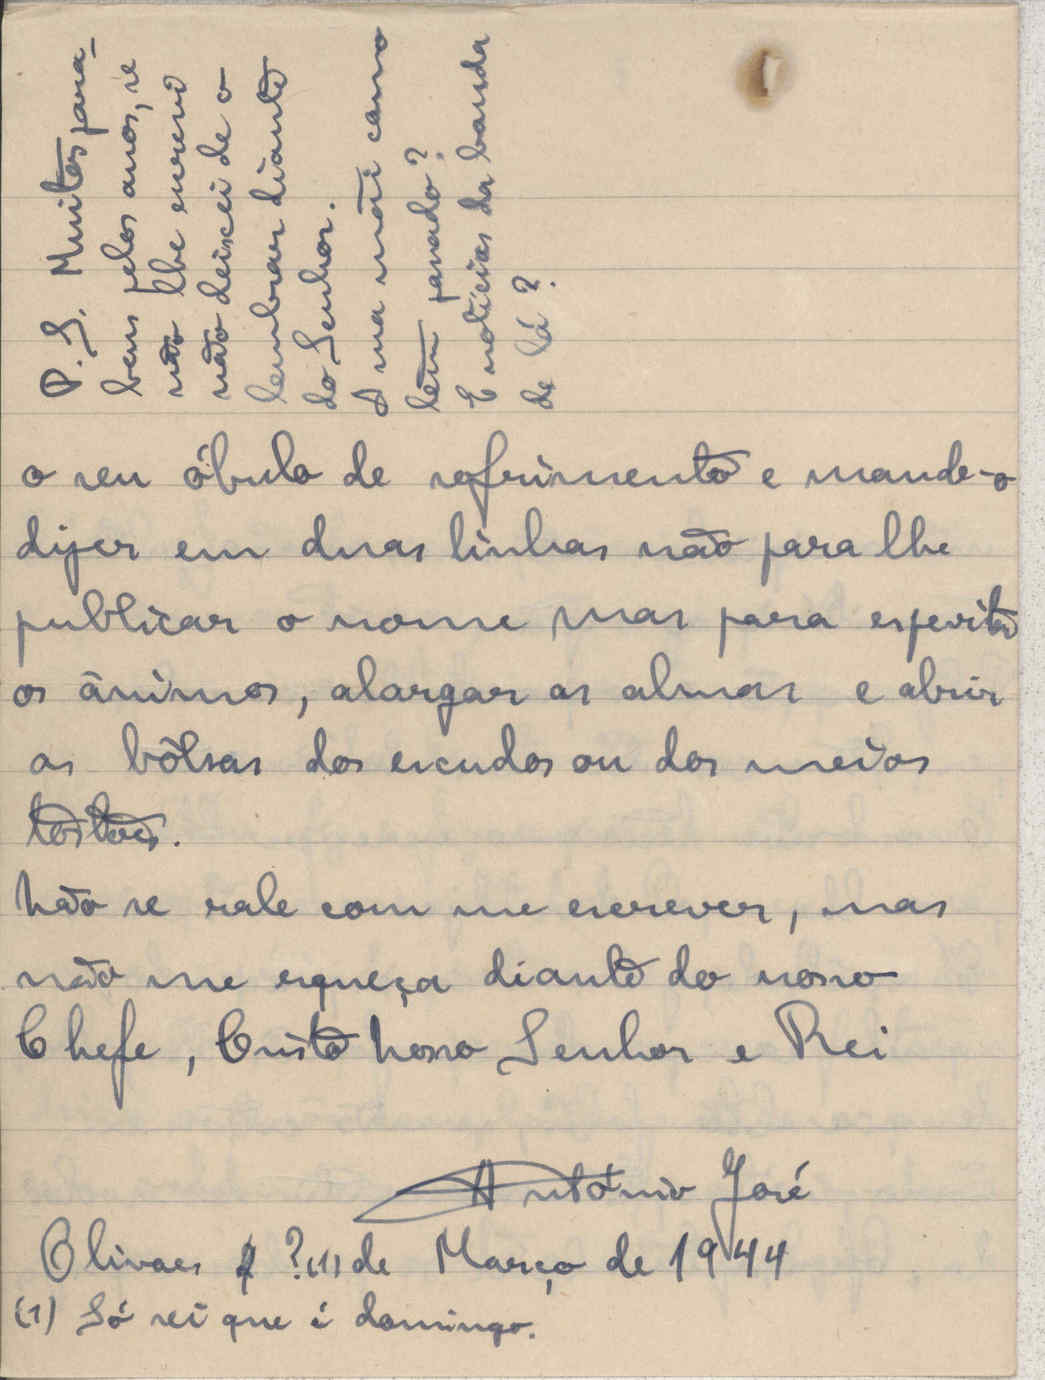 P.S. Muitos para-
bens pelos anos, se
não lhe escrevi
não deixei de o
lembrar diante
do Senhor.
A sua mãi como
tem passado?
E notícias da banda
de lá?
o seu óbulo de sofrimento e mande-o
dizer em duas linhas não para lhe
publicar o nome mas para espevitar
os ânimos, alargar as almas e abrir
as bôlsas dos escudos ou dos meios
tostões.
Não se rale com me escrever, mas
não me esqueça diante do nosso
Chefe, Cristo Nosso Senhor e Rei
António José
Olivaes ?(1) de Março de 1944
(1) Só sei que é domingo.